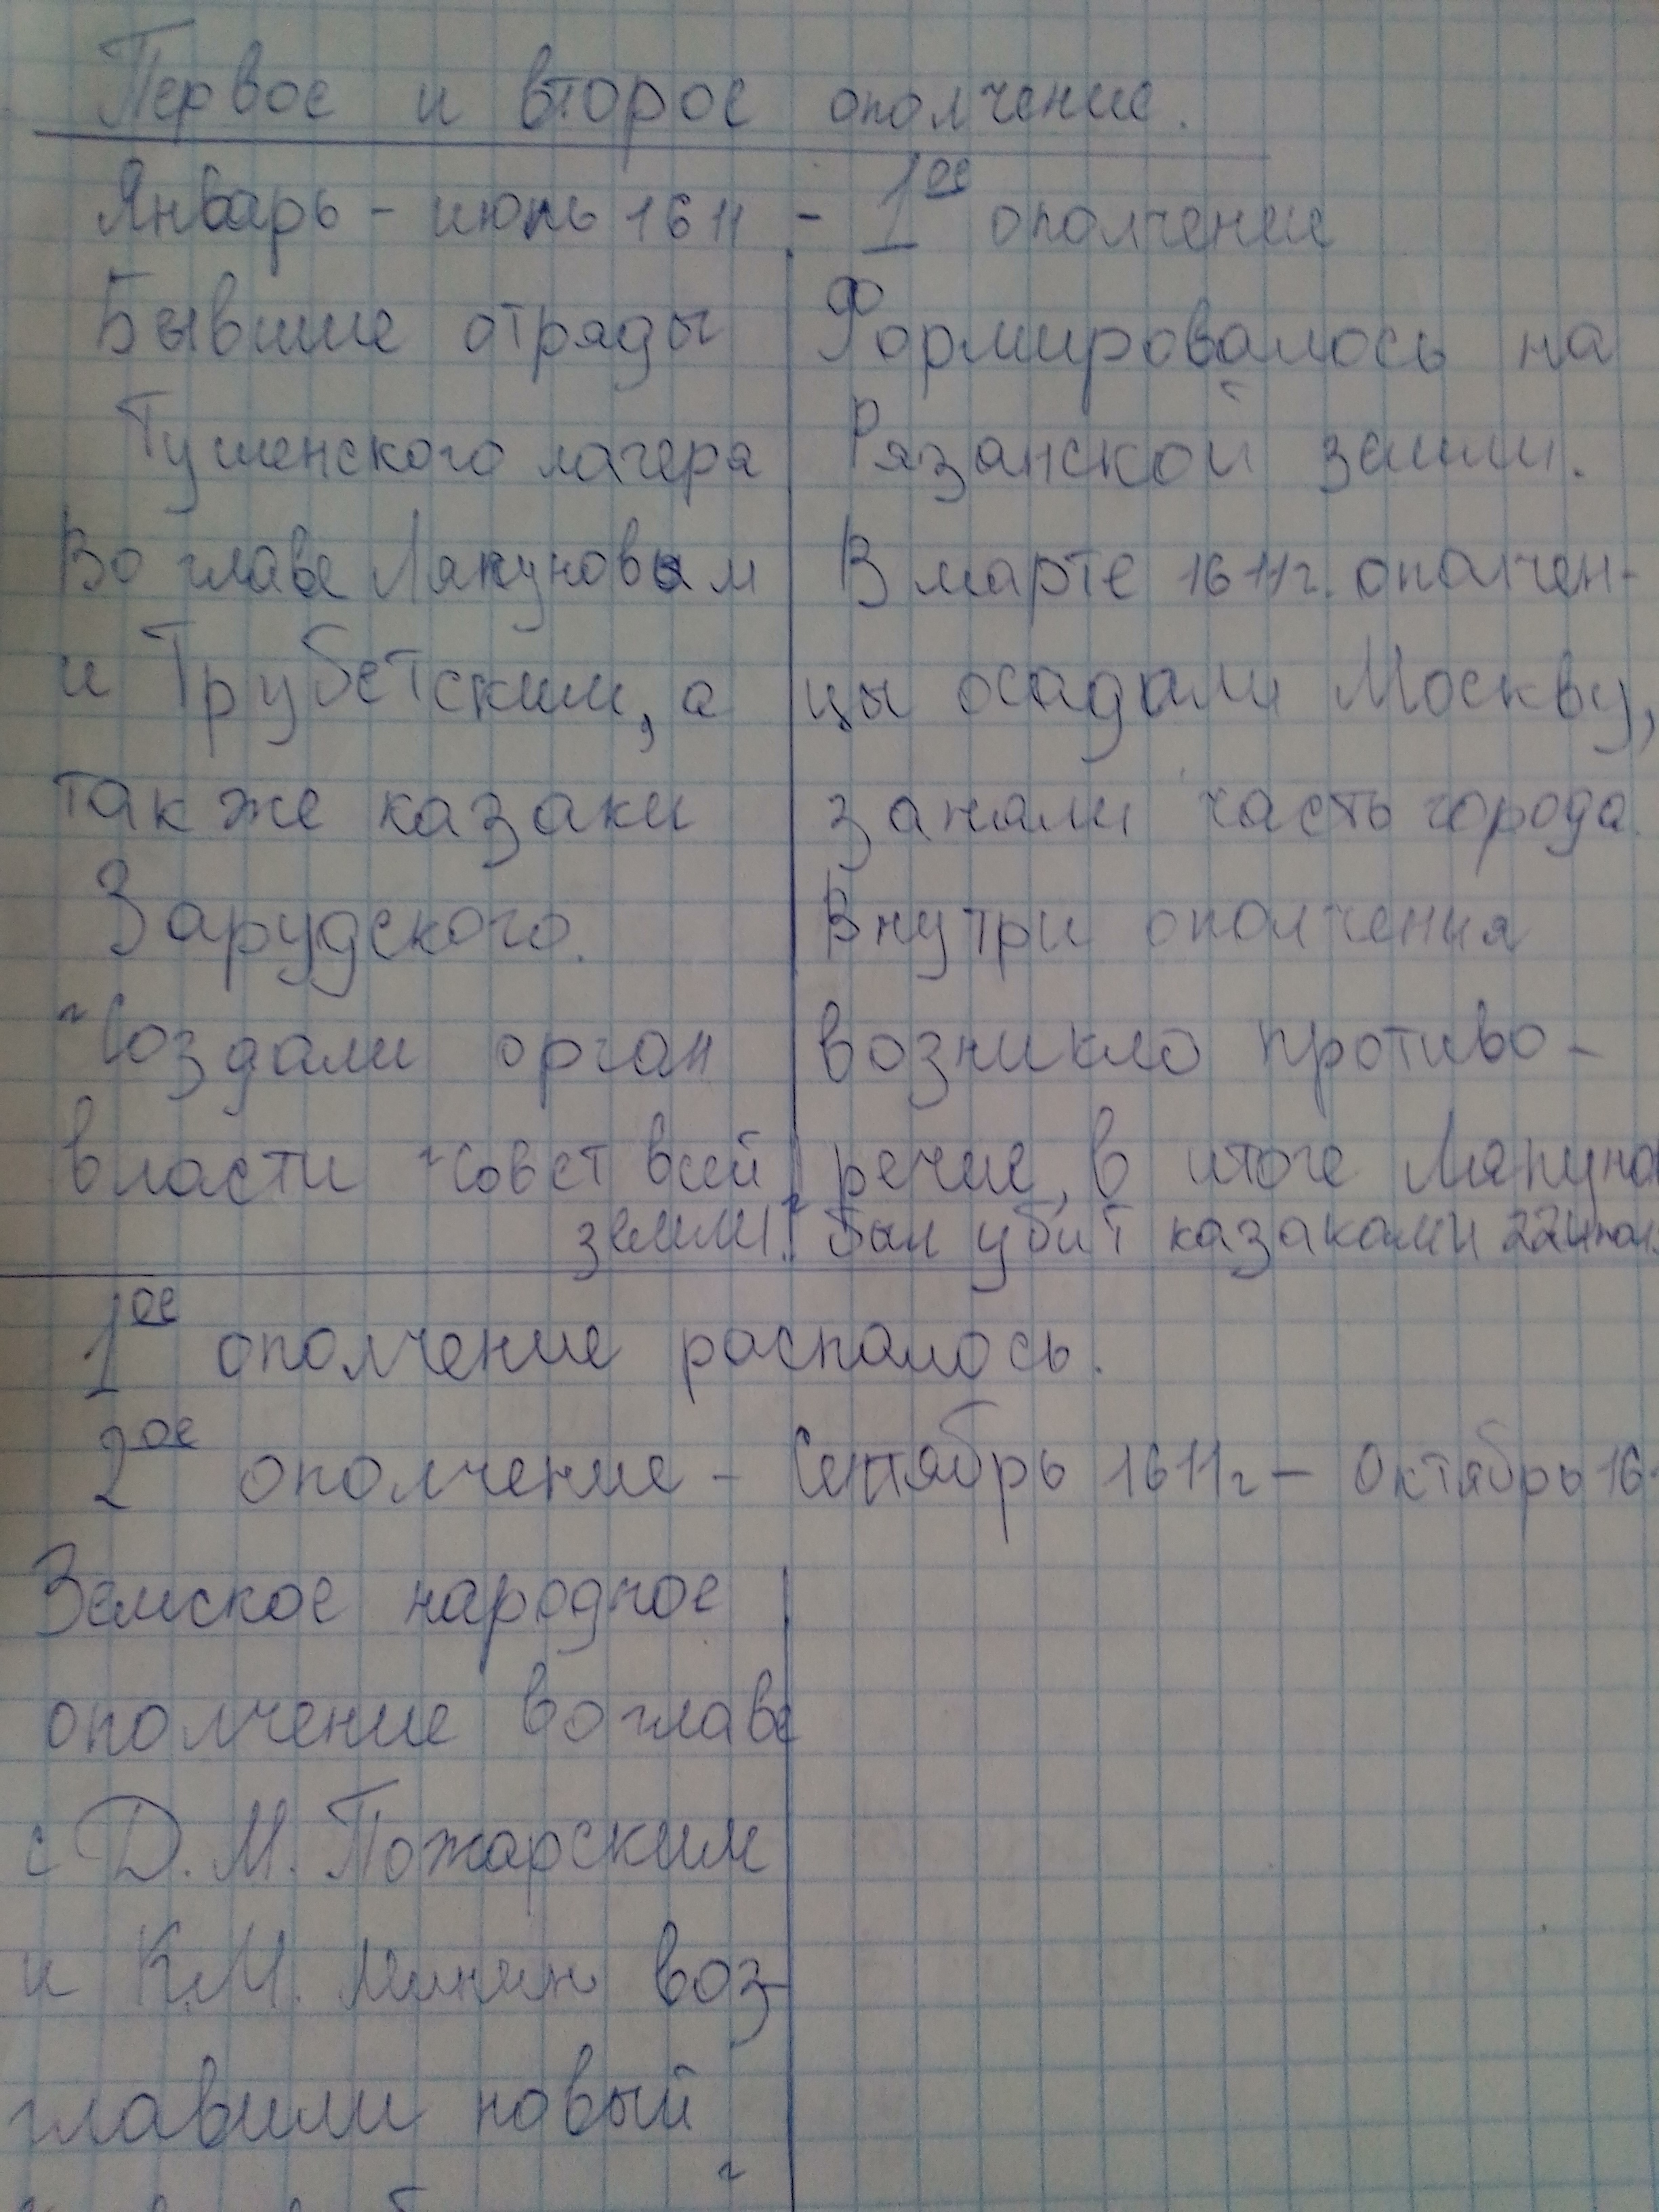 Первое и второе ополчение.
Январь - июль 1611 - 1ое ополчение
Бывшие отряды
Тушенского лагеря
Во главе Ляпуновым
и Трубетским, а
так же казаки
Зарудского.
"Создали орган
власти "Совет всей
земли".
Формировалось на
Рязанской земли.
В марте 1611г. ополчен-
цы осадали Москву,
заняли часть города
Внутри ополчения
возникло противо-
речие, в итоге Ляпунов
был убит казаками 22 июл
1ое ополчение распалось.
2ое ополчение - Сентябрь 1611г - Октябрь 16
Земское народное
ополчение во главе
с Д. М. Пожарским
и К.М. Минин воз-
главили новый